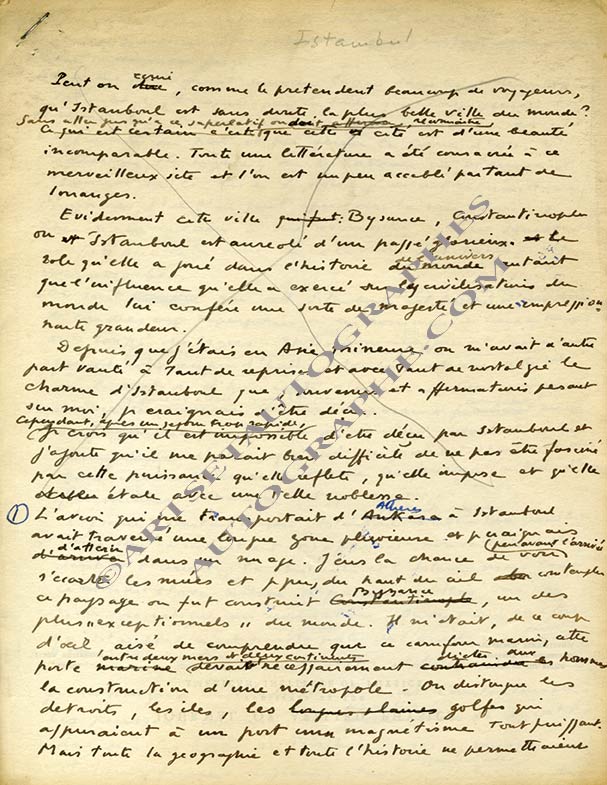 Istambul
Peut on dire écrire, comme le prétendent beaucoup de voyageurs,
qu'Istanboul est sans doute la plus belle ville du monde?
Sans aller jusqu'à ce superlatif on doit affirmer, reconnaître
Ce qui est certain c'est que cette cité est d'une beauté
incomparable. Toute une littérature a été consacrée à ce
merveilleux site et l'on est un peu accablé par tant de
louanges.
Evidemment cette ville qui fut Bysance, Constantinople
ou et Istanboul est auréolé d'un passé glorieux. et Le
rôle qu'elle a joué dans l'histoire du monde de l'univers autant
que l'influence qu'elle a exercé sur les civilisations du
monde lui confère une sorte de majesté et une impression
haute grandeur.
Depuis que j'étais en Asie mineure on m'avait d'autre
part vanté à tant de reprises et avec tant de nostalgie le
charme d'Istanboul que souvenirs et affirmations pesant
sur moi, je craignais d'être déçu.
Cependant, après un séjour trop rapide,
Je crois qu'il est impossible d'être déçu par Istanboul et
j'ajoute qu'il me paraît bien difficile de ne pas être fasciné
par cette puissance qu'elle reflète, qu'elle impose et qu'elle
étale avec une telle noblesse.
1 L'avion qui me transportait d'Ankara Athènes à Istanboul
avait traversé une longue zone pluvieuse et je craignais
d'arriver d'atterrir dans un nuage. J'eus la chance de voir peu avant l'arrivée
s'écarter les nuées et je pus, du haut du ciel contempler
ce paysage où fut construit Constantinople Bysance, un des
plus "exceptionnels" du monde. Il m'était, de ce coup
d'œil aisé de comprendre que ce carrefour marin, cette
porte marine entre deux mers et deux continents devait nécessairement contraindre dicter aux les hommes
la construction d'une métropole. On distingue les
détroits, les iles, les golfes qui
appuraient à un port un magnétisme tout puissant.
Mais toute la géographie et toute l'histoire ne permettraient
©ARTSETAUTOGRAPHES
AUTOGRAPHE.COM